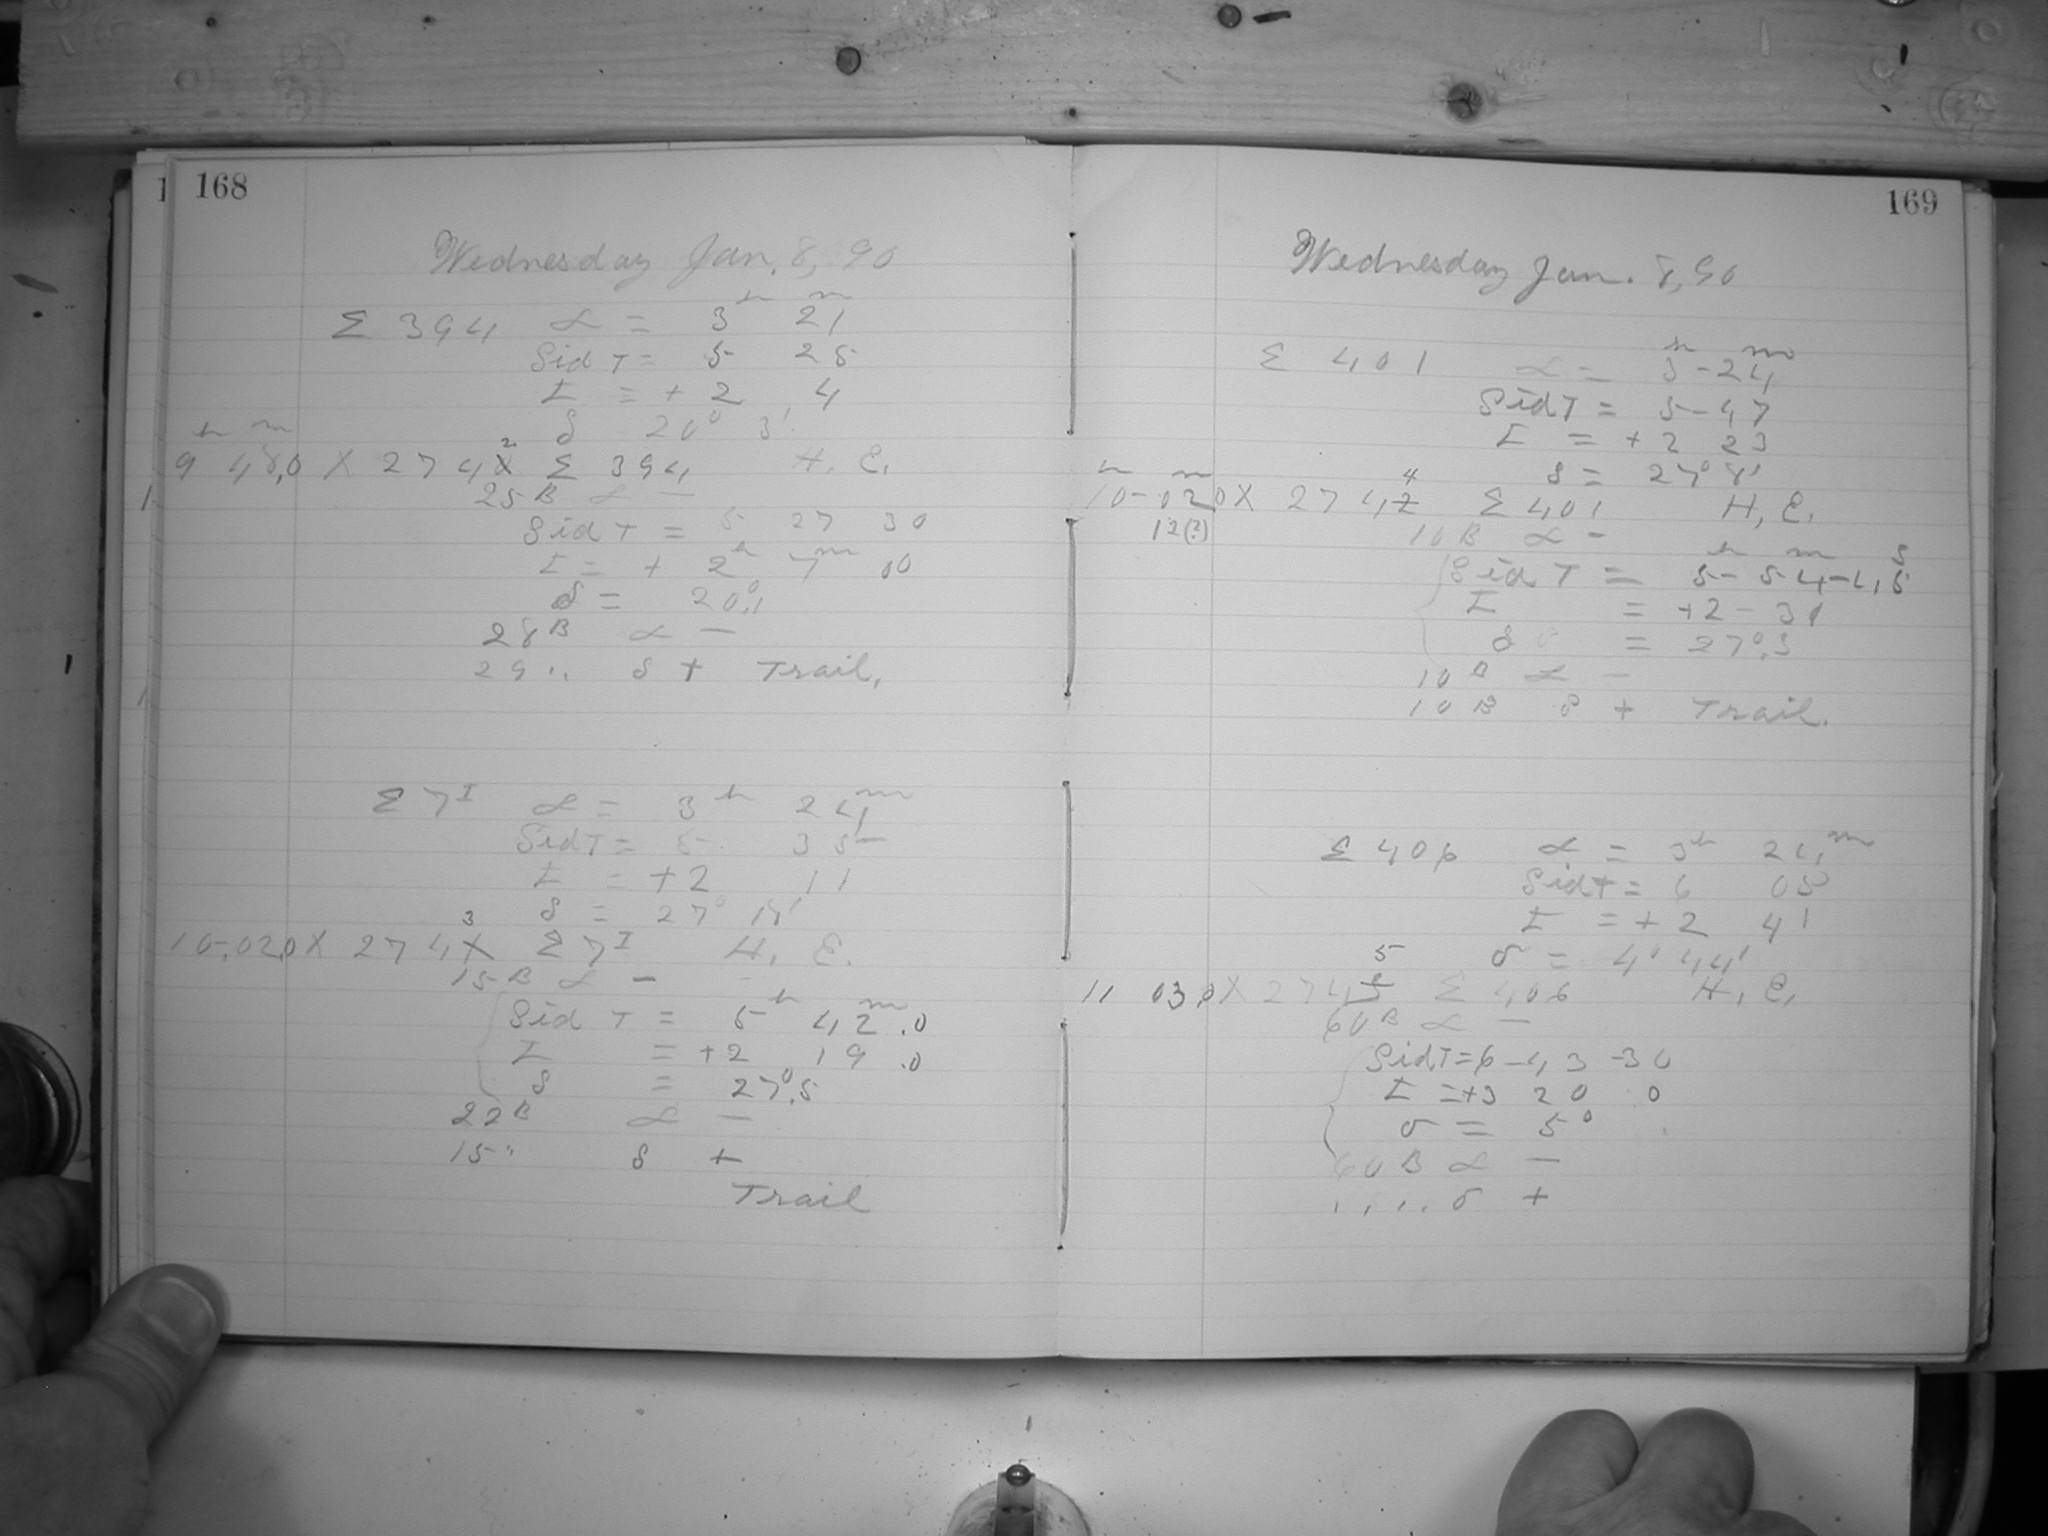 168
Wednesday Jan. 8, 90
Σ 394 α = 3h 21m
Sid T = 5 25
I = + 2 4
δ 20° 3'
h m
9 48.0 X 274 2 Σ 394 H. E.
25 B α —
Sid T = 5 27 30
I = + 2h 7m 00
δ = 20°.1
28 B α —
29 ,, δ + Trail.
Σ 7I α = 3h 24m
Sid T = 5 35
I = +2 11
δ = 27° 18'
10-02.0 X 274 3 Σ 7I H. E.
15 B α —
Sid T = 5h 42m.0
I = +2 19.0
δ = 27°.5
22 B α —
15 ,, δ +
Trail
169
Wednesday Jan. 8, 90
Σ 401 α = 3h-24m
Sid T = 5-47
I = +2 23
δ = 27° 8'
h m
10-020 X 274 4 Σ 401 H. E.
12(?)
10 B α —
Sid T = 5h-54m-45s
I = +2-31
δ = 27°.3
10 B α —
10 B δ + Trail.
Σ 406 α = 3h 24m
Sid T = 6 05
I = + 2 41
δ = 4° 44'
11 030 X 274 5 Σ 406 H. E.
60 B α —
Sid T = 6-43-30
I = +3 20 0
δ = 5°
60 B α —
,, ,, δ +